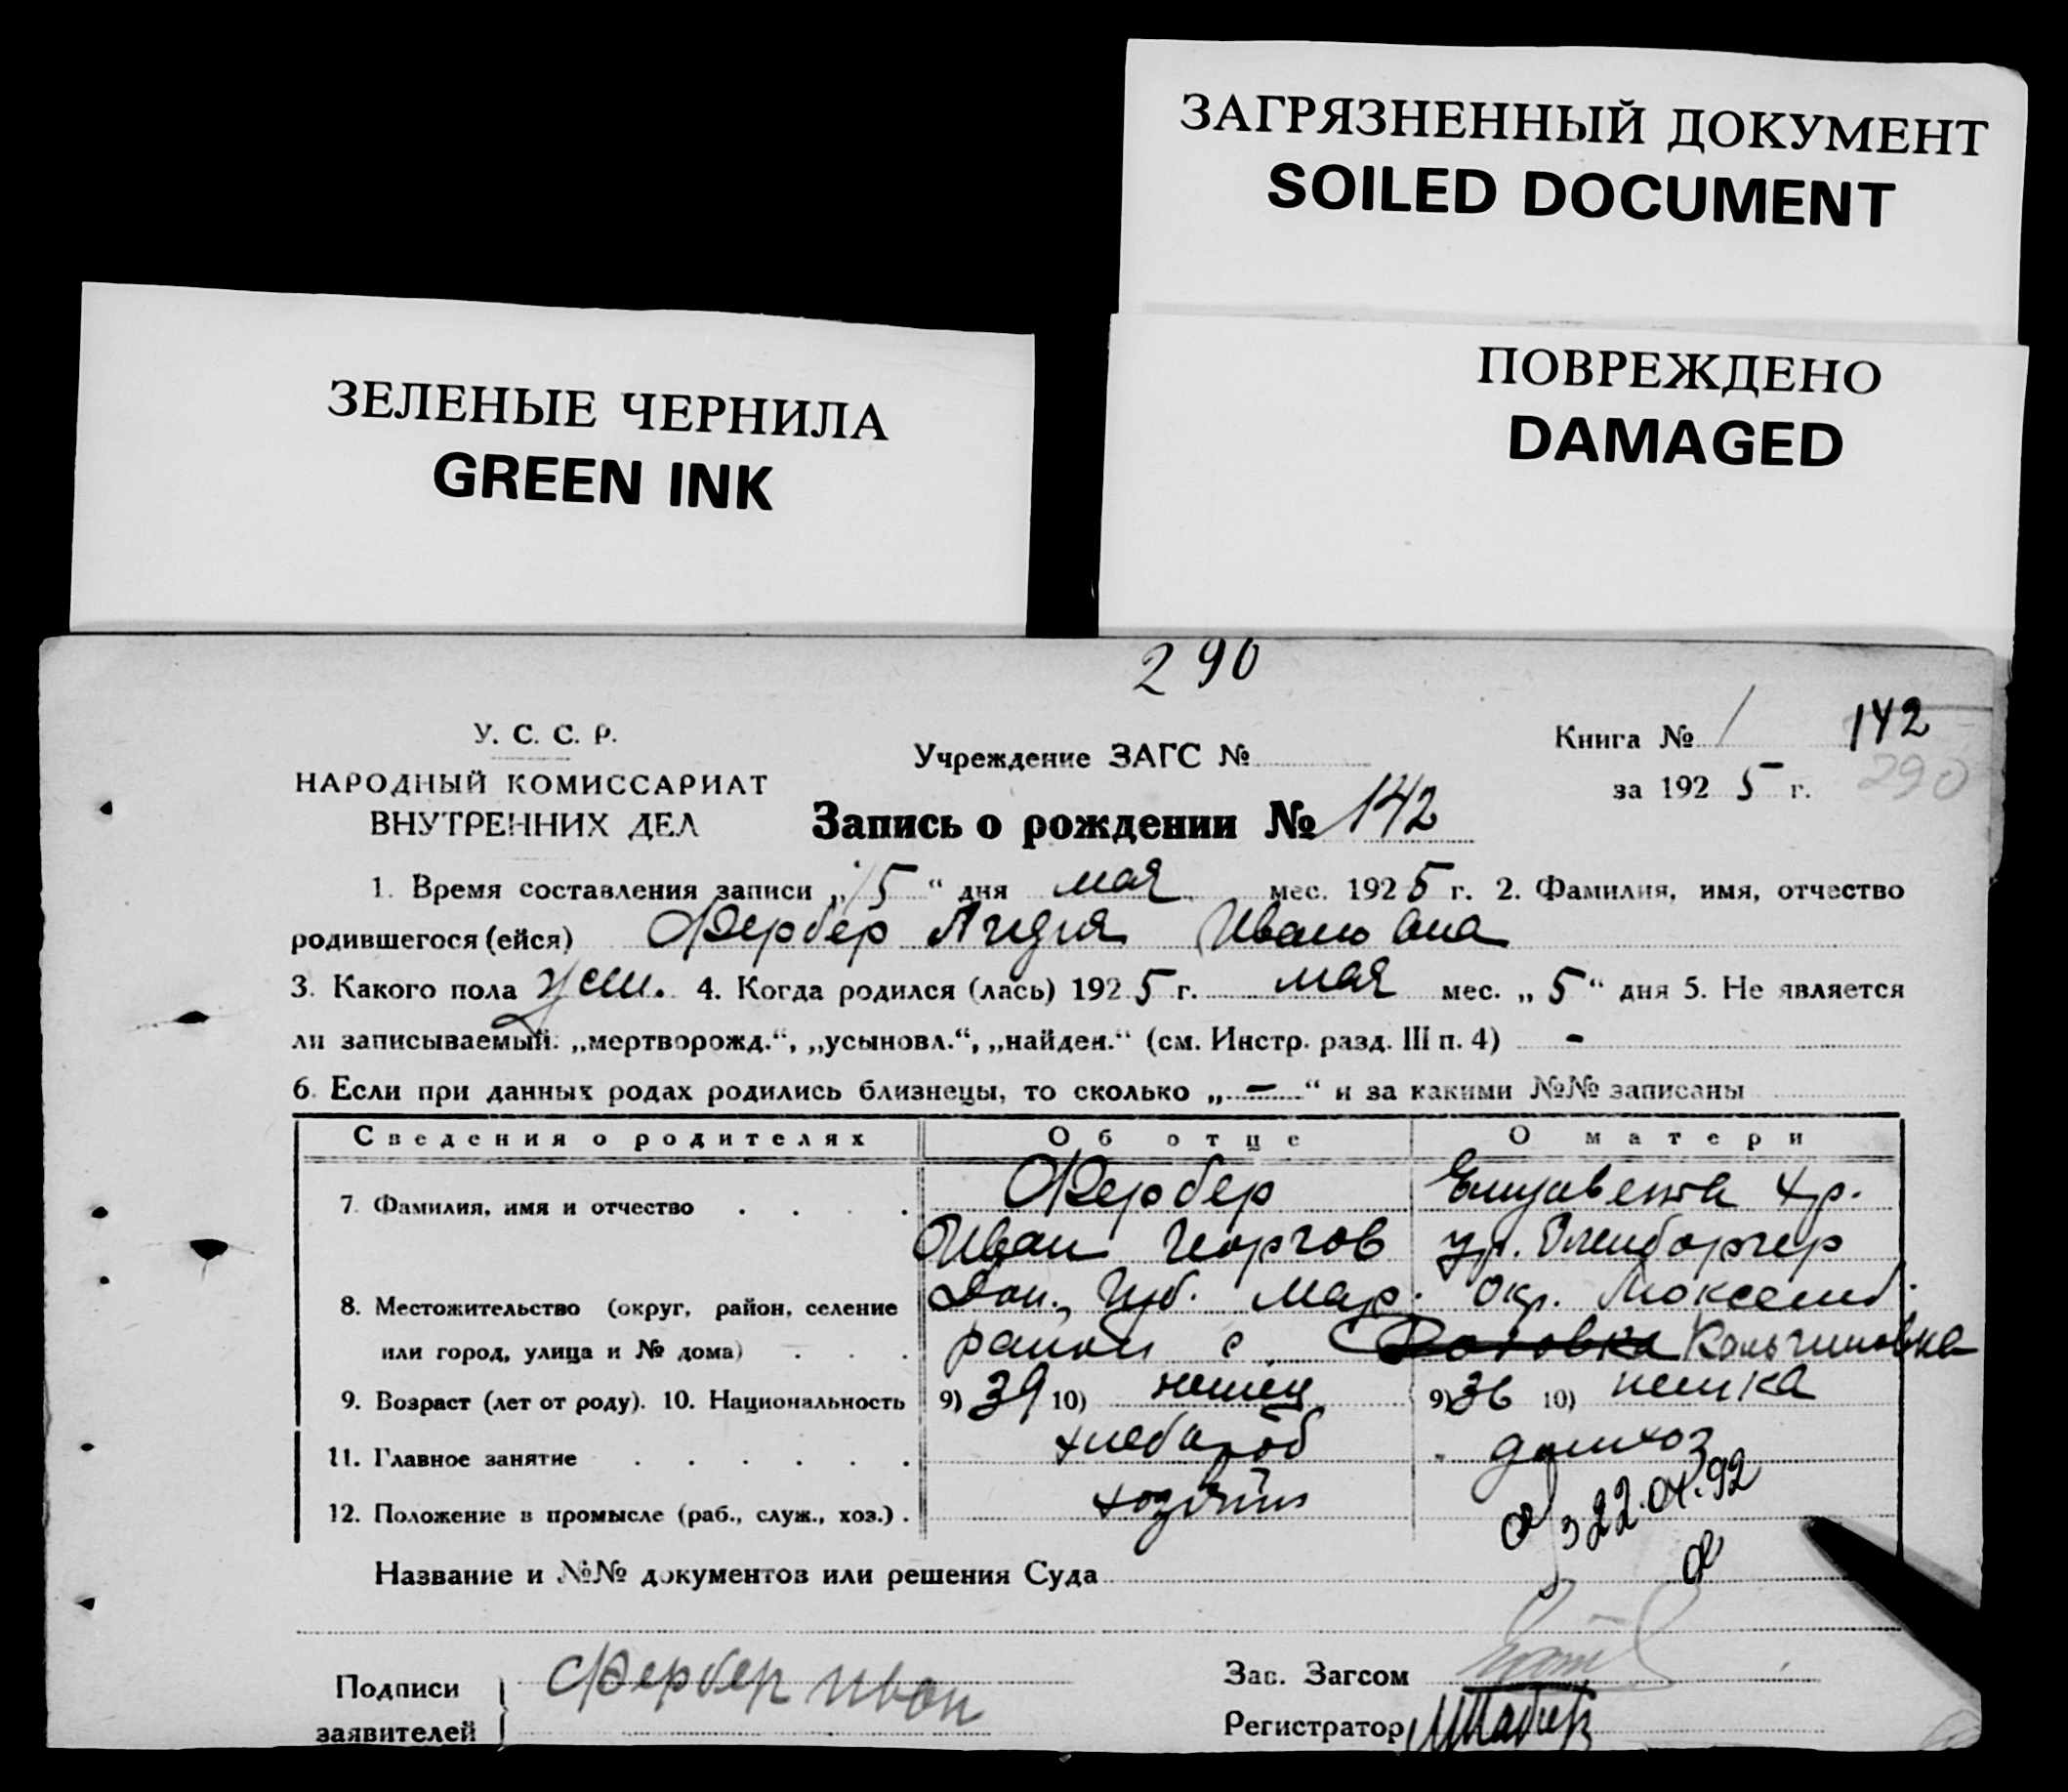 ЗАГРЯЗНЕННЫЙ ДОКУМЕНТ
SOILED DOCUMENT
ПОВРЕЖДЕНО
DAMAGED
ЗЕЛЕНЫЕ ЧЕРНИЛА
GREEN INK
290
У. С. С. Р.
НАРОДНЫЙ КОМИССАРИАТ
ВНУТРЕННИХ ДЕЛ
Учреждение ЗАГС №
Книга № 1 142
за 1925 г. 290
Запись о рождении № 142
1. Время составления записи „15“ дня мая мес. 1925 г. 2. Фамилия, имя, отчество
родившегося (ейся) Фербер Лидия Ивановна
3. Какого пола жен. 4. Когда родился (лась) 1925 г. мая мес. „5“ дня 5. Не является
ли записываемый: „мертворожд.“, „усыновл.“, „найден.“ (см. Инстр. разд. III п. 4) -
6. Если при данных родах родились близнецы, то сколько „-“ и за какими №№ записаны
Сведения о родителях Об отце О матери
7. Фамилия, имя и отчество Фербер Елизавета Хр.
Иван Георгов ур.
8. Местожительство (округ, район, селение Дон. Губ. Мар. Окр. Люксемб.
или город, улица и № дома) район с. Кальчиновка
9. Возраст (лет от роду). 10. Национальность 9) 39 10) немец 9) 36 10) немка
11. Главное занятие хлебароб домхоз
12. Положение в промысле (раб., служ., хоз.). хозяин
22.04.92
Название и №№ документов или решения Суда
Подписи
заявителей
Фербер Иван
Зав. Загсом
Регистратор